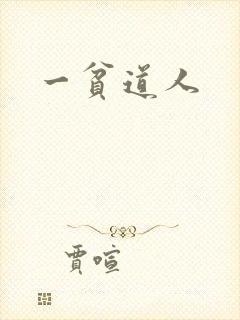 一貧道人
賈喧